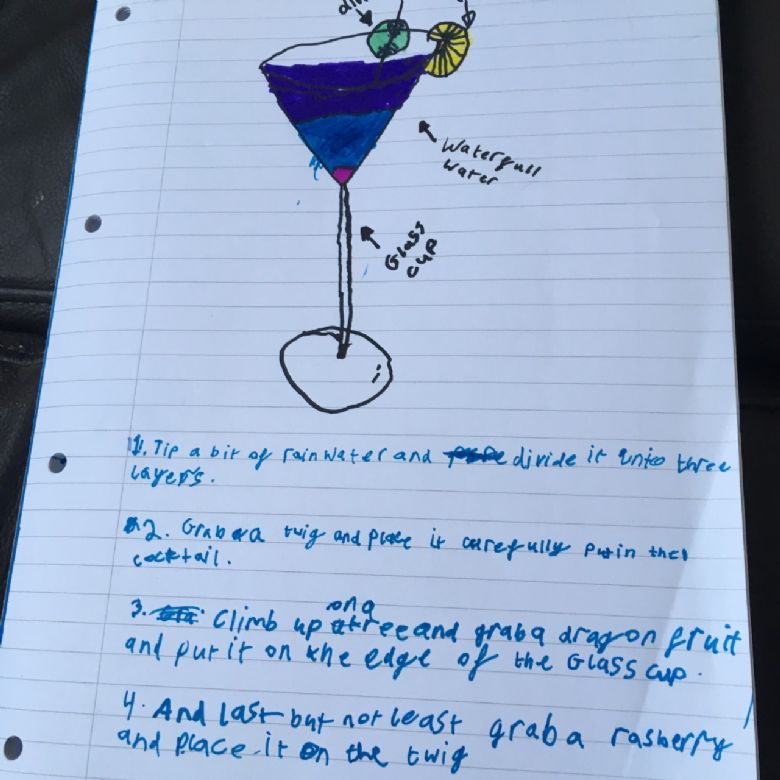 Waterfull
water
Glass
cup
1. Tip a bit of rainwater and divide it into three
layers.
2. Grab a twig and place it carefully put in the
cocktail.
3. Climb up on a tree and grab a dragon fruit
and put it on the edge of the Glass cup.
4. And last but not least grab a rasberry
and place it on the twig